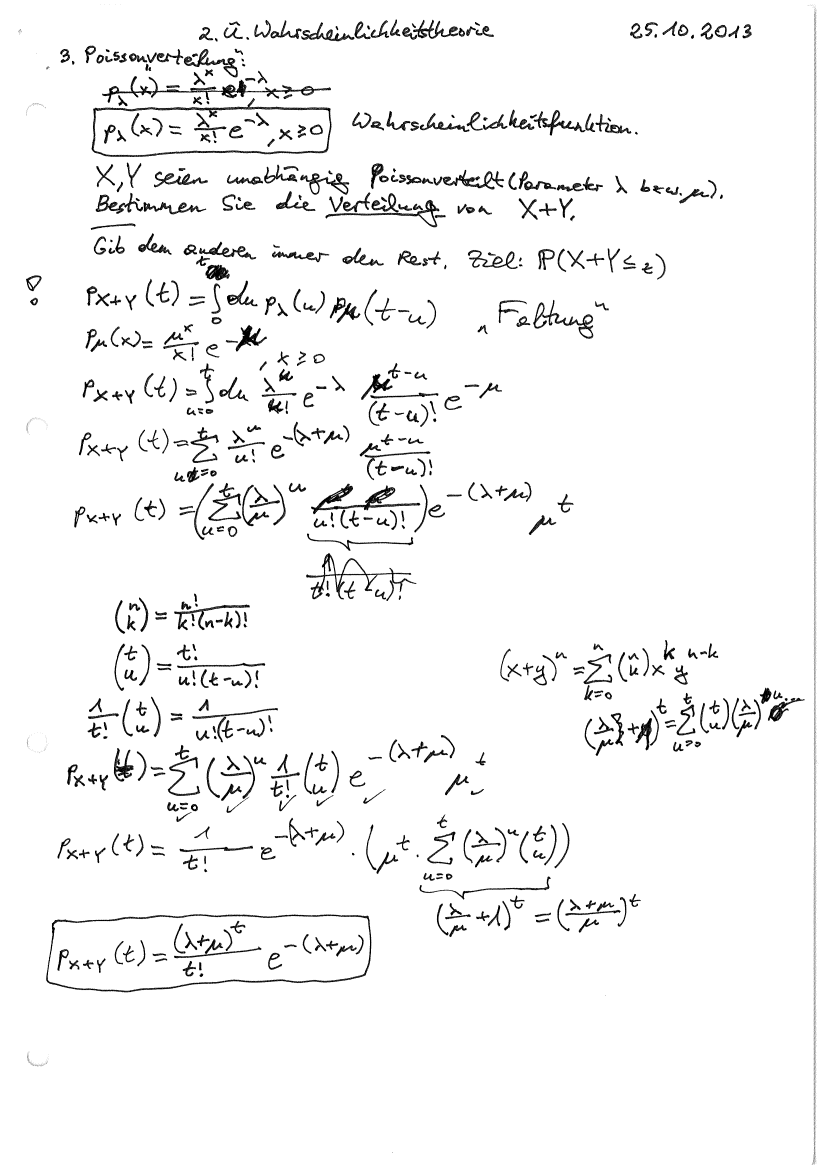 2. Ü. Wahrscheinlichkeitstheorie 25.10.2013
3. „Poissonverteilung“:
p_λ(x) = λ^x/x! e^{-λ}, x ≥ 0
p_λ(x) = λ^x/x! e^{-λ}, x ≥ 0 Wahrscheinlichkeitsfunktion.
X, Y seien unabhängig Poissonverteilt (Parameter λ bzw. μ).
Bestimmen Sie die Verteilung von X+Y.
Gib dem anderen immer den Rest. Ziel: ℙ(X+Y ≤ t)
! p_{X+Y}(t) = ∫_0^t du p_λ(u) p_μ(t-u) „Faltung“
p_μ(x) = μ^x/x! e^{-μ}, x ≥ 0
p_{X+Y}(t) = ∫_{u=0}^t du λ^u/u! e^{-λ} μ^{t-u}/(t-u)! e^{-μ}
p_{X+Y}(t) = ∑_{u=0}^t λ^u/u! e^{-(λ+μ)} μ^{t-u}/(t-u)!
p_{X+Y}(t) = (∑_{u=0}^t (λ/μ)^u /u!(t-u)!) e^{-(λ+μ)} μ^t
t!(t-u)!
(n k) = n!/k!(n-k)!
(t u) = t!/u!(t-u)! (x+y)^n = ∑_{k=0}^n (n k) x^k y^{n-k}
1/t! (t u) = 1/u!(t-u)! (λ/μ + 1)^t = ∑_{u=0}^t (t u) (λ/μ)^u...
p_{X+Y}(t) = ∑_{u=0}^t (λ/μ)^u 1/t! (t u) e^{-(λ+μ)} μ^t
p_{X+Y}(t) = 1/t! e^{-(λ+μ)} · (μ^t · ∑_{u=0}^t (λ/μ)^u (t u))
(λ/μ + 1)^t = (λ+μ/μ)^t
p_{X+Y}(t) = (λ+μ)^t/t! e^{-(λ+μ)}